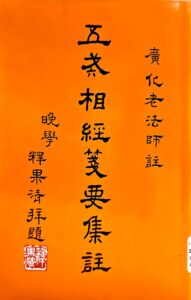 廣化老法師註
五戒相經箋要集註
晚學
釋果清拜題